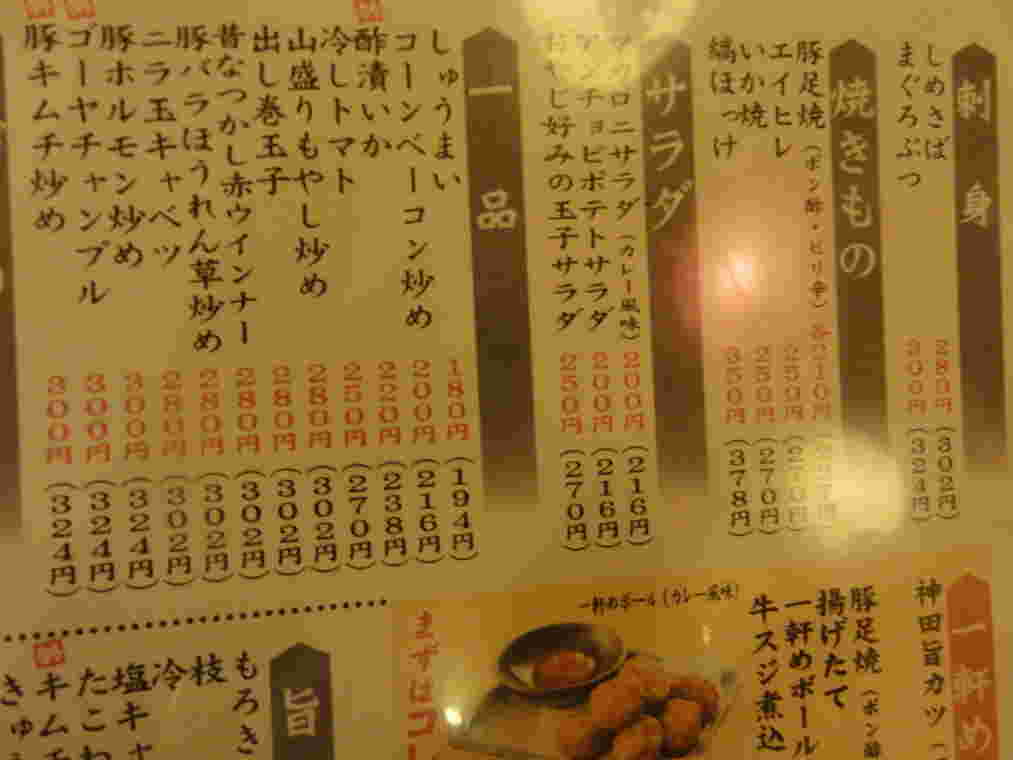 刺身
しめさば 280円 (302円)
まぐろぶつ 300円 (324円)
焼きもの
豚足焼 (ポン酢・ピリ辛) 各210円 (227円)
エイヒレ 250円 (270円)
いか焼 250円 (270円)
縞ほっけ 350円 (378円)
サラダ
マカロニサラダ (カレー風味) 200円 (216円)
アンチョビポテトサラダ 200円 (216円)
おやじ好みの玉子サラダ 250円 (270円)
一品
しゅうまい 180円 (194円)
コーンベーコン炒め 200円 (216円)
酢漬いか 220円 (238円)
冷しトマト 250円 (270円)
山盛りもやし炒め 280円 (302円)
出し巻玉子 280円 (302円)
昔なつかし赤ウインナー 280円 (302円)
豚バラほうれん草炒め 280円 (302円)
ニラ玉キャベツ 280円 (302円)
豚ホルモン炒め 300円 (324円)
ゴーヤチャンプル 300円 (324円)
豚キムチ炒め 300円 (324円)
一軒め
神田旨カツ
豚足焼 (ポン酢
揚げたて
一軒めボール
牛スジ煮込
一軒めボール (カレー風味)
まずはコー
旨
もろき
枝
冷
塩キャ
たこわ
キムチ
きゅう